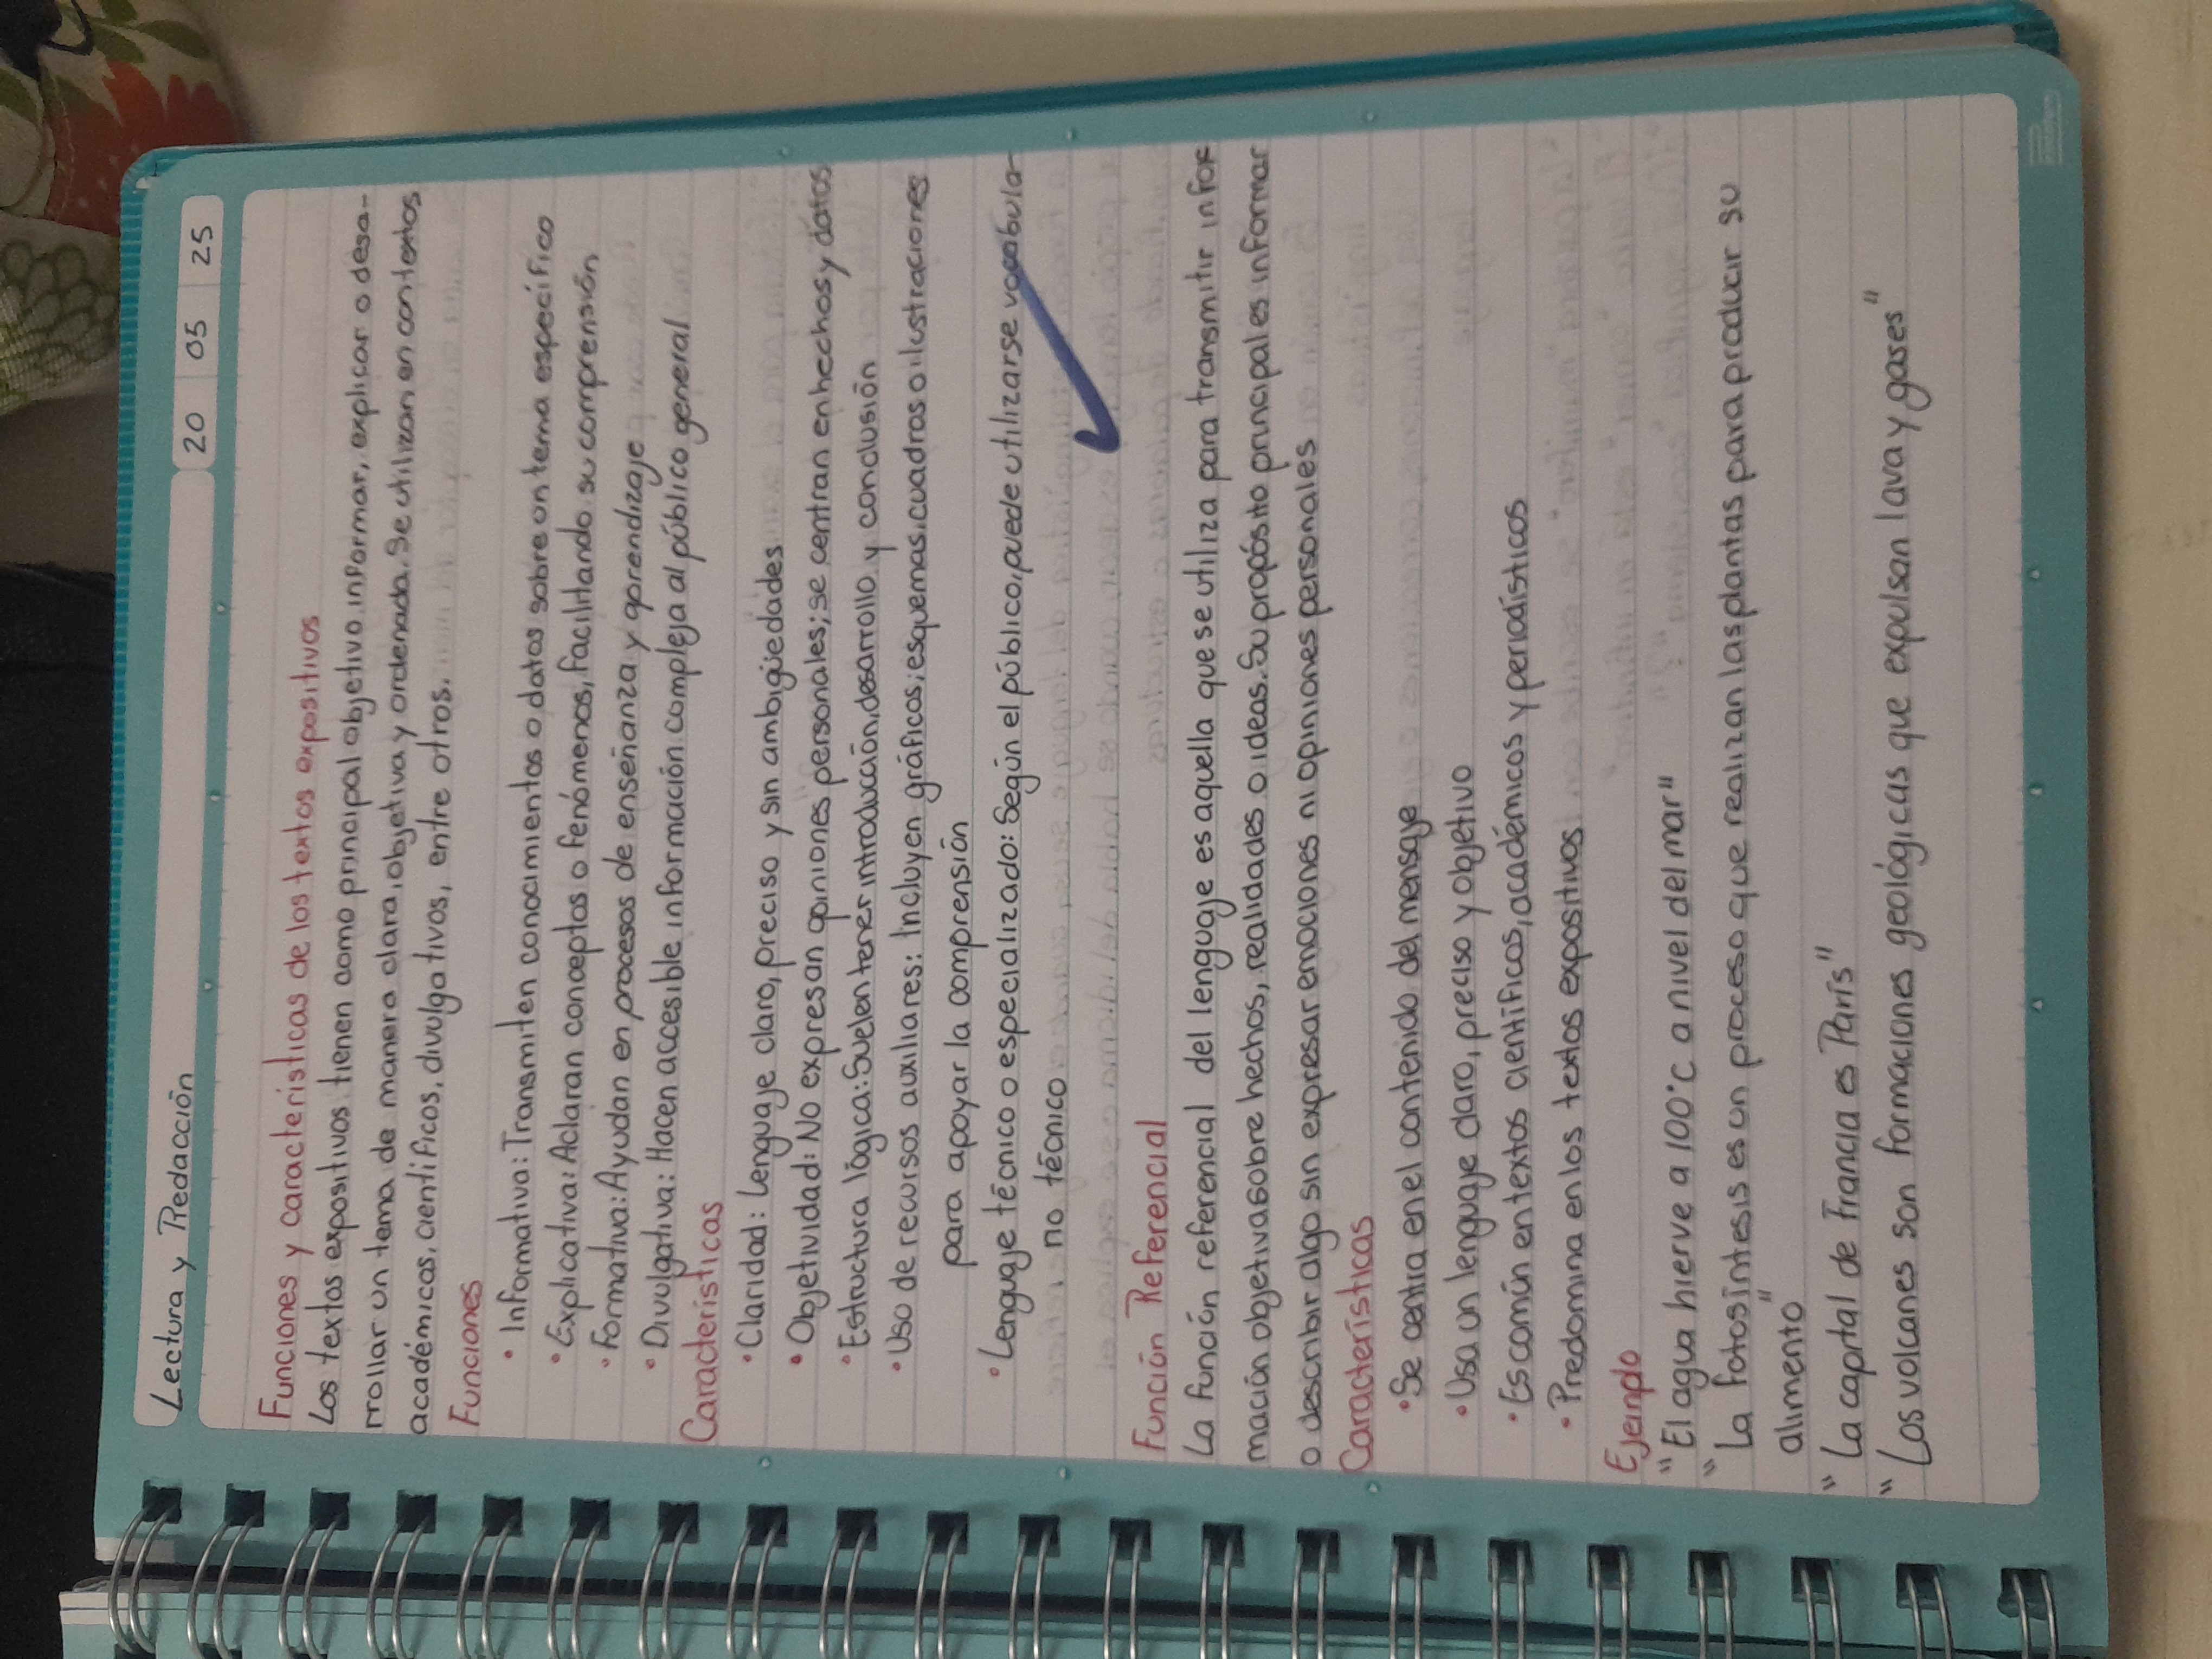 Lectura y Redacción 20 05 25
Funciones y características de los textos expositivos
Los textos expositivos tienen como principal objetivo informar, explicar o desa-
rrollar un tema de manera clara, objetiva y ordenada. Se utilizan en contextos
académicos, científicos, divulgativos, entre otros.
Funciones
• Informativa: Transmiten conocimientos o datos sobre un tema específico
• Explicativa: Aclaran conceptos o fenómenos, facilitando su comprensión
• Formativa: Ayudan en procesos de enseñanza y aprendizaje
• Divulgativa: Hacen accesible información compleja al público general
Características
• Claridad: Lenguaje claro, preciso y sin ambigüedades
• Objetividad: No expresan opiniones personales; se centran en hechos y datos
• Estructura lógica: Suelen tener introducción, desarrollo y conclusión
• Uso de recursos auxiliares: Incluyen gráficos; esquemas, cuadros o ilustraciones
para apoyar la comprensión
• Lenguaje técnico o especializado: Según el público, puede utilizarse vocabula-
no técnico
Función Referencial
La función referencial del lenguaje es aquella que se utiliza para transmitir infor
mación objetiva sobre hechos, realidades o ideas. Su propósito principal es informar
o describir algo sin expresar emociones ni opiniones personales
Características
• Se centra en el contenido del mensaje
• Usa un lenguaje claro, preciso y objetivo
• Es común en textos científicos, académicos y periodísticos
• Predomina en los textos expositivos
Ejemplo
"El agua hierve a 100°C a nivel del mar"
"La fotosíntesis es un proceso que realizan las plantas para producir su
alimento"
"La capital de Francia es París"
"Los volcanes son formaciones geológicas que expulsan lava y gases"